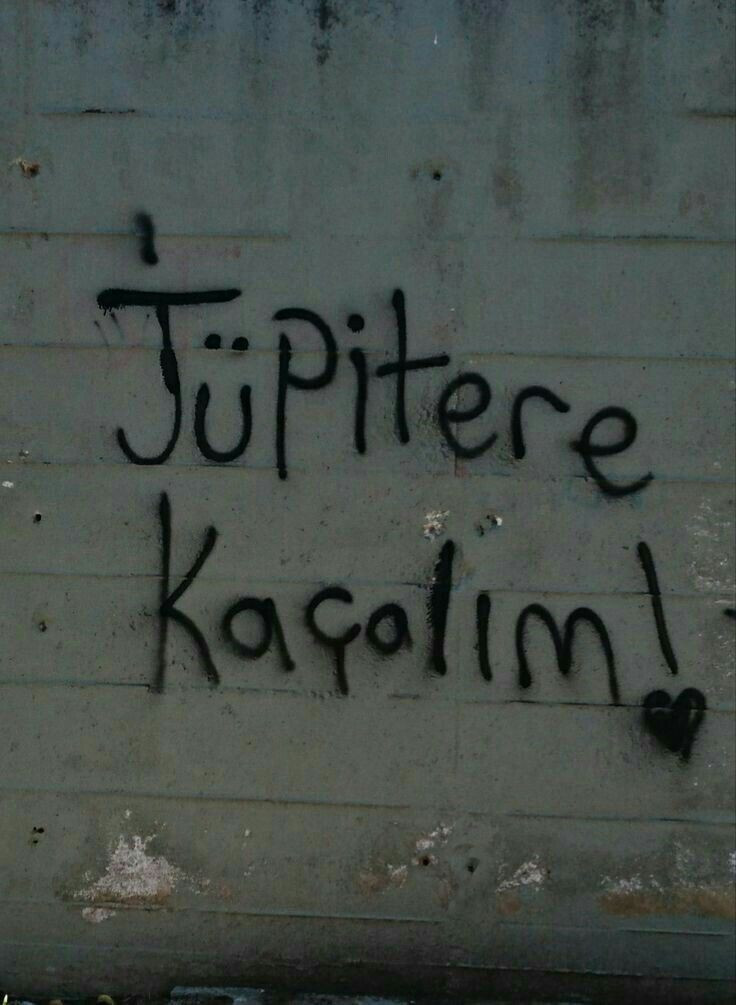 Jüpitere
Kaçalım!